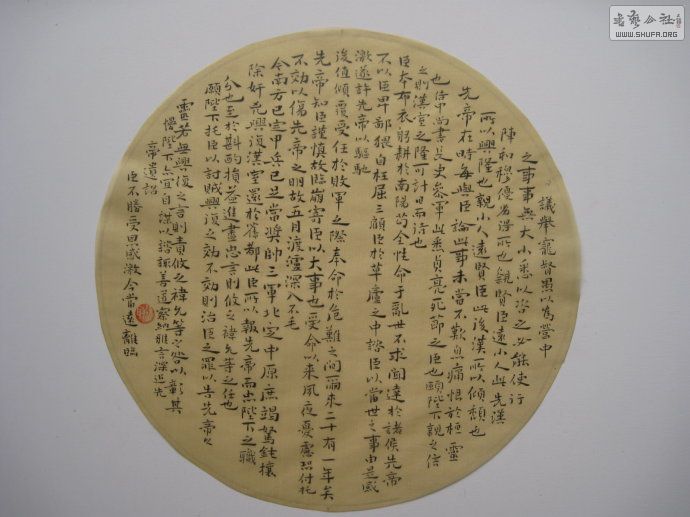 議舉寵督愚以為營中
之事事無大小悉以咨之必能使行
陣和穆優劣得所也親賢臣遠小人此先漢
所以興隆也親小人遠賢臣此後漢所以傾頹也
先帝在時每與臣論此事未嘗不歎息痛恨於桓靈
也侍中尚書長史參軍此悉貞亮死節之臣也願陛下親之信
之則漢室之隆可計日而待也
臣本布衣躬耕於南陽苟全性命于亂世不求聞達於諸侯先帝
不以臣卑鄙猥自枉屈三顧臣於草廬之中諮臣以當世之事由是感
激遂許先帝以驅馳
後值傾覆受任於敗軍之際奉命於危難之間爾來二十有一年矣
先帝知臣謹慎故臨崩寄臣以大事也受命以來夙夜憂慮恐付托
不効以傷先帝之明故五月渡瀘深入不毛
今南方已定甲兵已足當獎帥三軍北定中原庶竭駑鈍攘
除奸兇興復漢室還於舊都此臣所以報先帝而忠陛下之職
分也至於斟酌損益進盡忠言則攸之禕允等之任也
願陛下托臣以討賊興復之効不効則治臣之罪以告先帝之
靈若無興復之言則責攸之禕允等之咎以彰其
慢陛下亦宜自謀以諮諏善道察納雅言深追先
帝遺詔
臣不勝受恩感激今當遠離臨
WWW.SHUFA.ORG